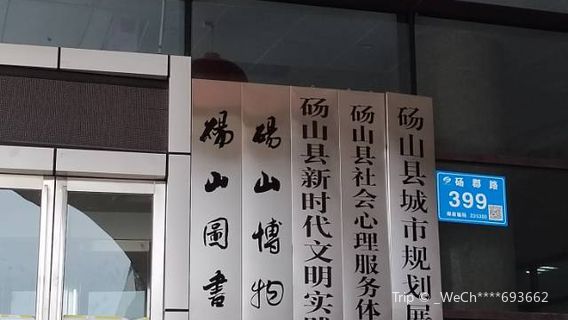 砀山圖書
砀山博物
砀山县新时代文明实践
砀山县社会心理服务体
砀山县城市规划展
砀郡路
399
Trip © _WeCh****693662